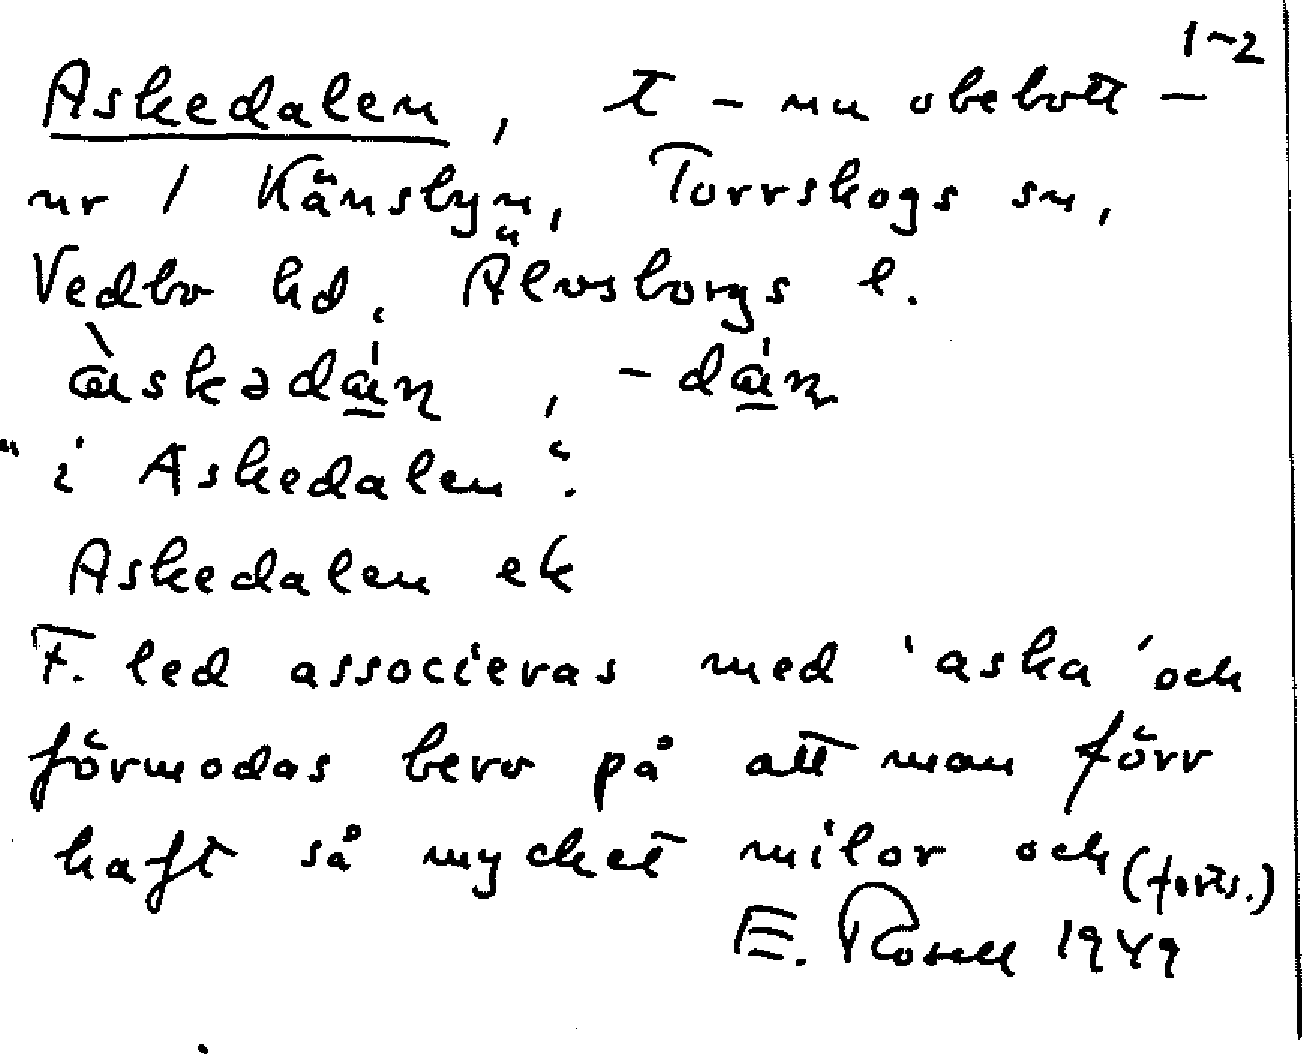 1-2
Askedalen, t - nu obebott -
nr 1 Känsbyn, Torrskogs sn,
Vedbo hd, Älvsborgs l.
àskədán, -dán
"i Askedalen".
Askedalen ek
F. led associeras med 'aska' och
förmodas bero på att man förr
haft så mycket milor och (forts.)
E. Rosell 1949